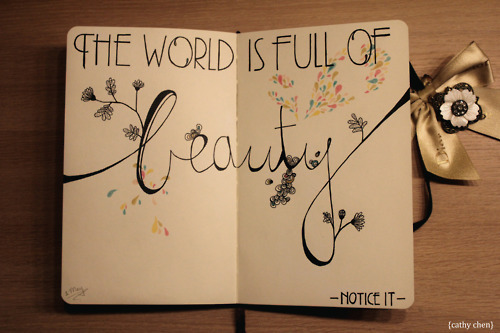 THE WORLD IS FULL OF
beauty
-NOTICE IT-
{cathy chen}